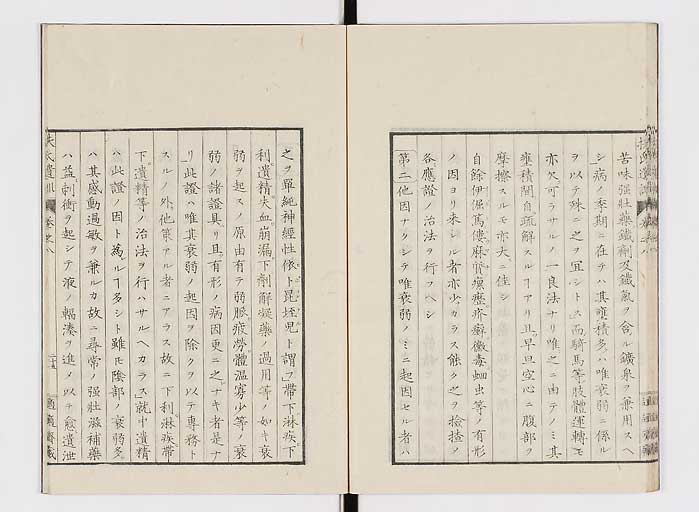 苦味强壯藥鐵劑及鐵氣ヲ含ル鑛泉ヲ兼用スヘ
シ病ノ季期ニ在テハ其壅積多ハ唯衰弱ニ係ル
ヲ以テ殊ニ之ヲ冝シトス而騎馬等肢體運轉モ
亦欠可ラサルノ一良法ナリ唯之ニ由テノミ其
壅積間自疏解スルヿアリ且早旦空心ニ腹部ヲ
摩擦スルモ亦大ニ佳シ
自餘伊偃麻僂麻質瘰癧疥癬黴毒蛔虫等ノ有形
ノ因ヨリ来シル者亦少カラス能ク之ヲ撿査メ
各應證ノ治法ヲ行フヘシ
第二他因ナクシテ唯衰弱ノミニ起因セル者ハ
之ヲ單純神經性依ト昆垤児ト謂フ帶下淋疾下
利遺精失血崩漏下劑解凝藥ノ過用等ノ如キ衰
弱ヲ起スノ原由有テ弱脈疲勞體温寡少等ノ衰
弱ノ諸證具リ且有形ノ病因更ニ之ナキ者是ナ
リ此證ハ唯其衰弱ノ起因ヲ除クヲ以テ專務ト
スルノ外他策アル者ニアラス故ニ下利淋疾帶
下遺精等ノ治法ヲ行ハサルヘカラス就中遺精
ハ此證ノ因ト為ルヿ多シト雖モ陰部ノ衰弱多
ハ其感動過敏ヲ兼ルカ故ニ尋常ノ强壯滋補藥
ハ益刺衝ヲ起シテ液ノ輻湊ヲ進メ以テ愈遺泄
遺訓 卷之八